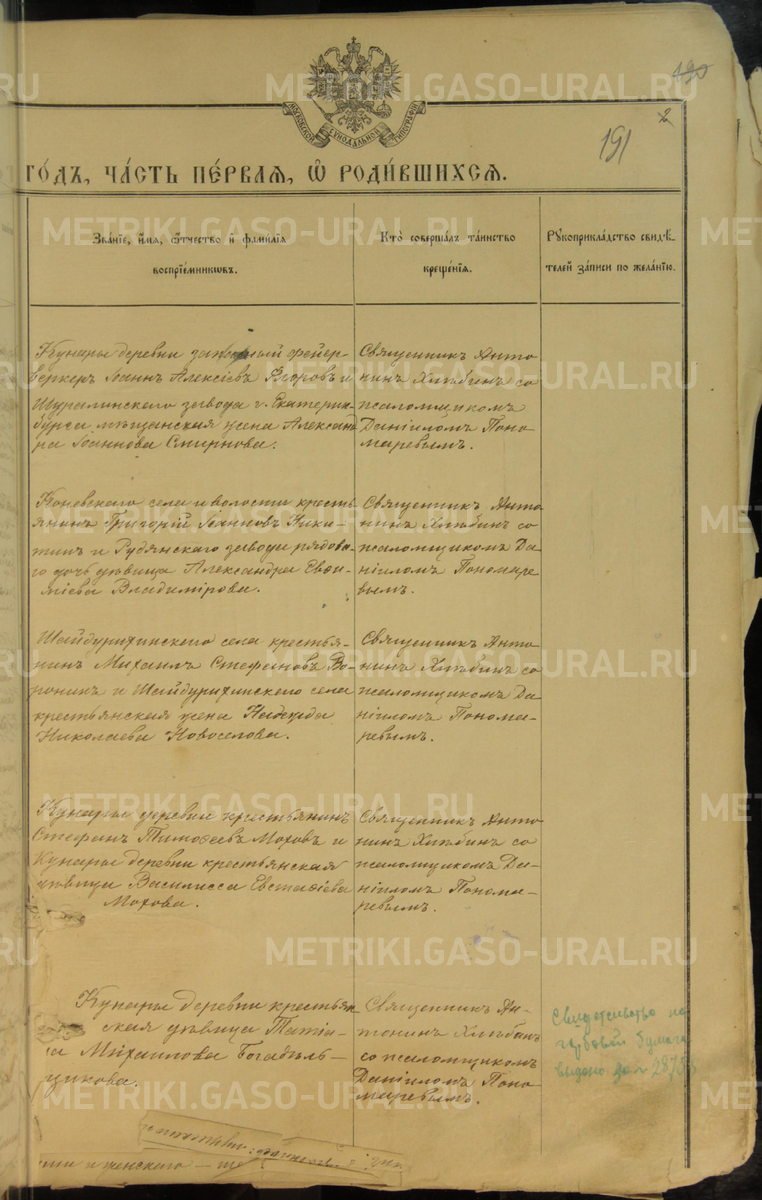 190
2
191
МОСКОВСКОЙ СѴНОДАЛЬНОЙ ТИПОГРАФІИ
ГОДЪ, ЧАСТЬ ПЕРВАЯ, Ѡ РОДИВШИХСЯ.
Званіе, имя, ѻтчество и фамилія
воспріемникѡвъ.
Кто совершалъ таинство
крещенія.
Рукоприкладство свидѣ-
телей записи по желанію.
Кунары деревни запасный фейер-
веркеръ Іоаннъ Алексіевъ Егоровъ и
Шуралинскаго завода г. Екатерин-
бурга мѣщанская жена Александ-
ра Іоаннова Смирнова.
Священникъ Анто-
нинъ Хлѣбинъ со
псаломщикомъ
Даніиломъ Поно-
маревымъ.
Коневскаго села и волости кресть-
янинъ Григорій Іоанновъ Ники-
тинъ и Рудянскаго завода рядова-
го дочь дѣвица Александра Евѳи-
міева Владимірова.
Священникъ Анто-
нинъ Хлѣбинъ со
псаломщикомъ Да-
ніиломъ Пономаре-
вымъ.
Шайдурихинскаго села крестья-
нинъ Михаилъ Стефановъ Во-
ронинъ и Шайдурихинскаго села
крестьянская жена Надежда
Николаева Новоселова.
Священникъ Анто-
нинъ Хлѣбинъ со
псаломщикомъ Да-
ніиломъ Понома-
ревымъ.
Кунары деревни крестьянинъ
Стефанъ Тимоѳеевъ Моховъ и
Кунары деревни крестьянская
дѣвица Василисса Евстаѳіева
Мохова.
Священникъ Анто-
нинъ Хлѣбинъ со
псаломщикомъ Да-
ніиломъ Понома-
ревымъ.
Кунары деревни крестьян-
ская дѣвица Татіа-
на Михаилова Богадѣль-
щикова.
Священникъ Ан-
тонинъ Хлѣбинъ
со псаломщикомъ
Даніиломъ Поно-
маревымъ.
Свидетельство на
гербовой бумаге
выдано за №
и женскаго
METRIKI.GASO-URAL.RU